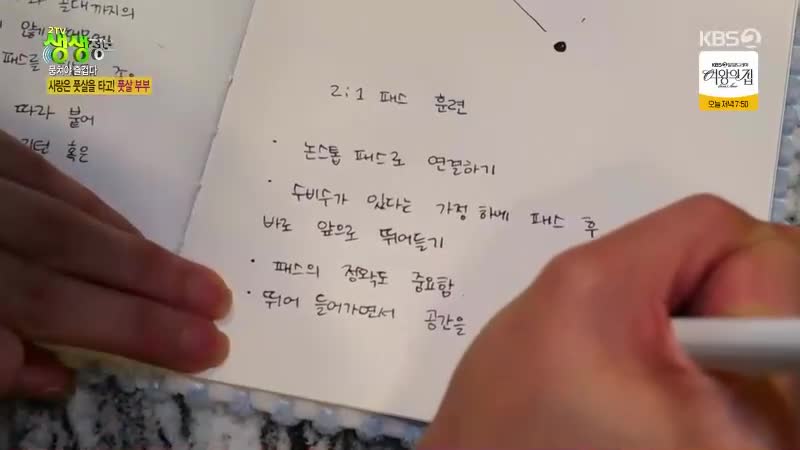 2TV
생생
뭉쳐야 즐겁다
사랑은 풋살을 타고! 풋살 부부
KBS2
여왕의 집
오늘 저녁 7:50
까지의
않기
패스를
따라 붙어
혹은
2:1 패스 훈련
· 논스톱 패스로 연결하기
· 수비수가 있다는 가정 하에 패스 후
바로 앞으로 뛰어들기
· 패스의 정확도 중요함.
· 뛰어 들어가면서 공간을